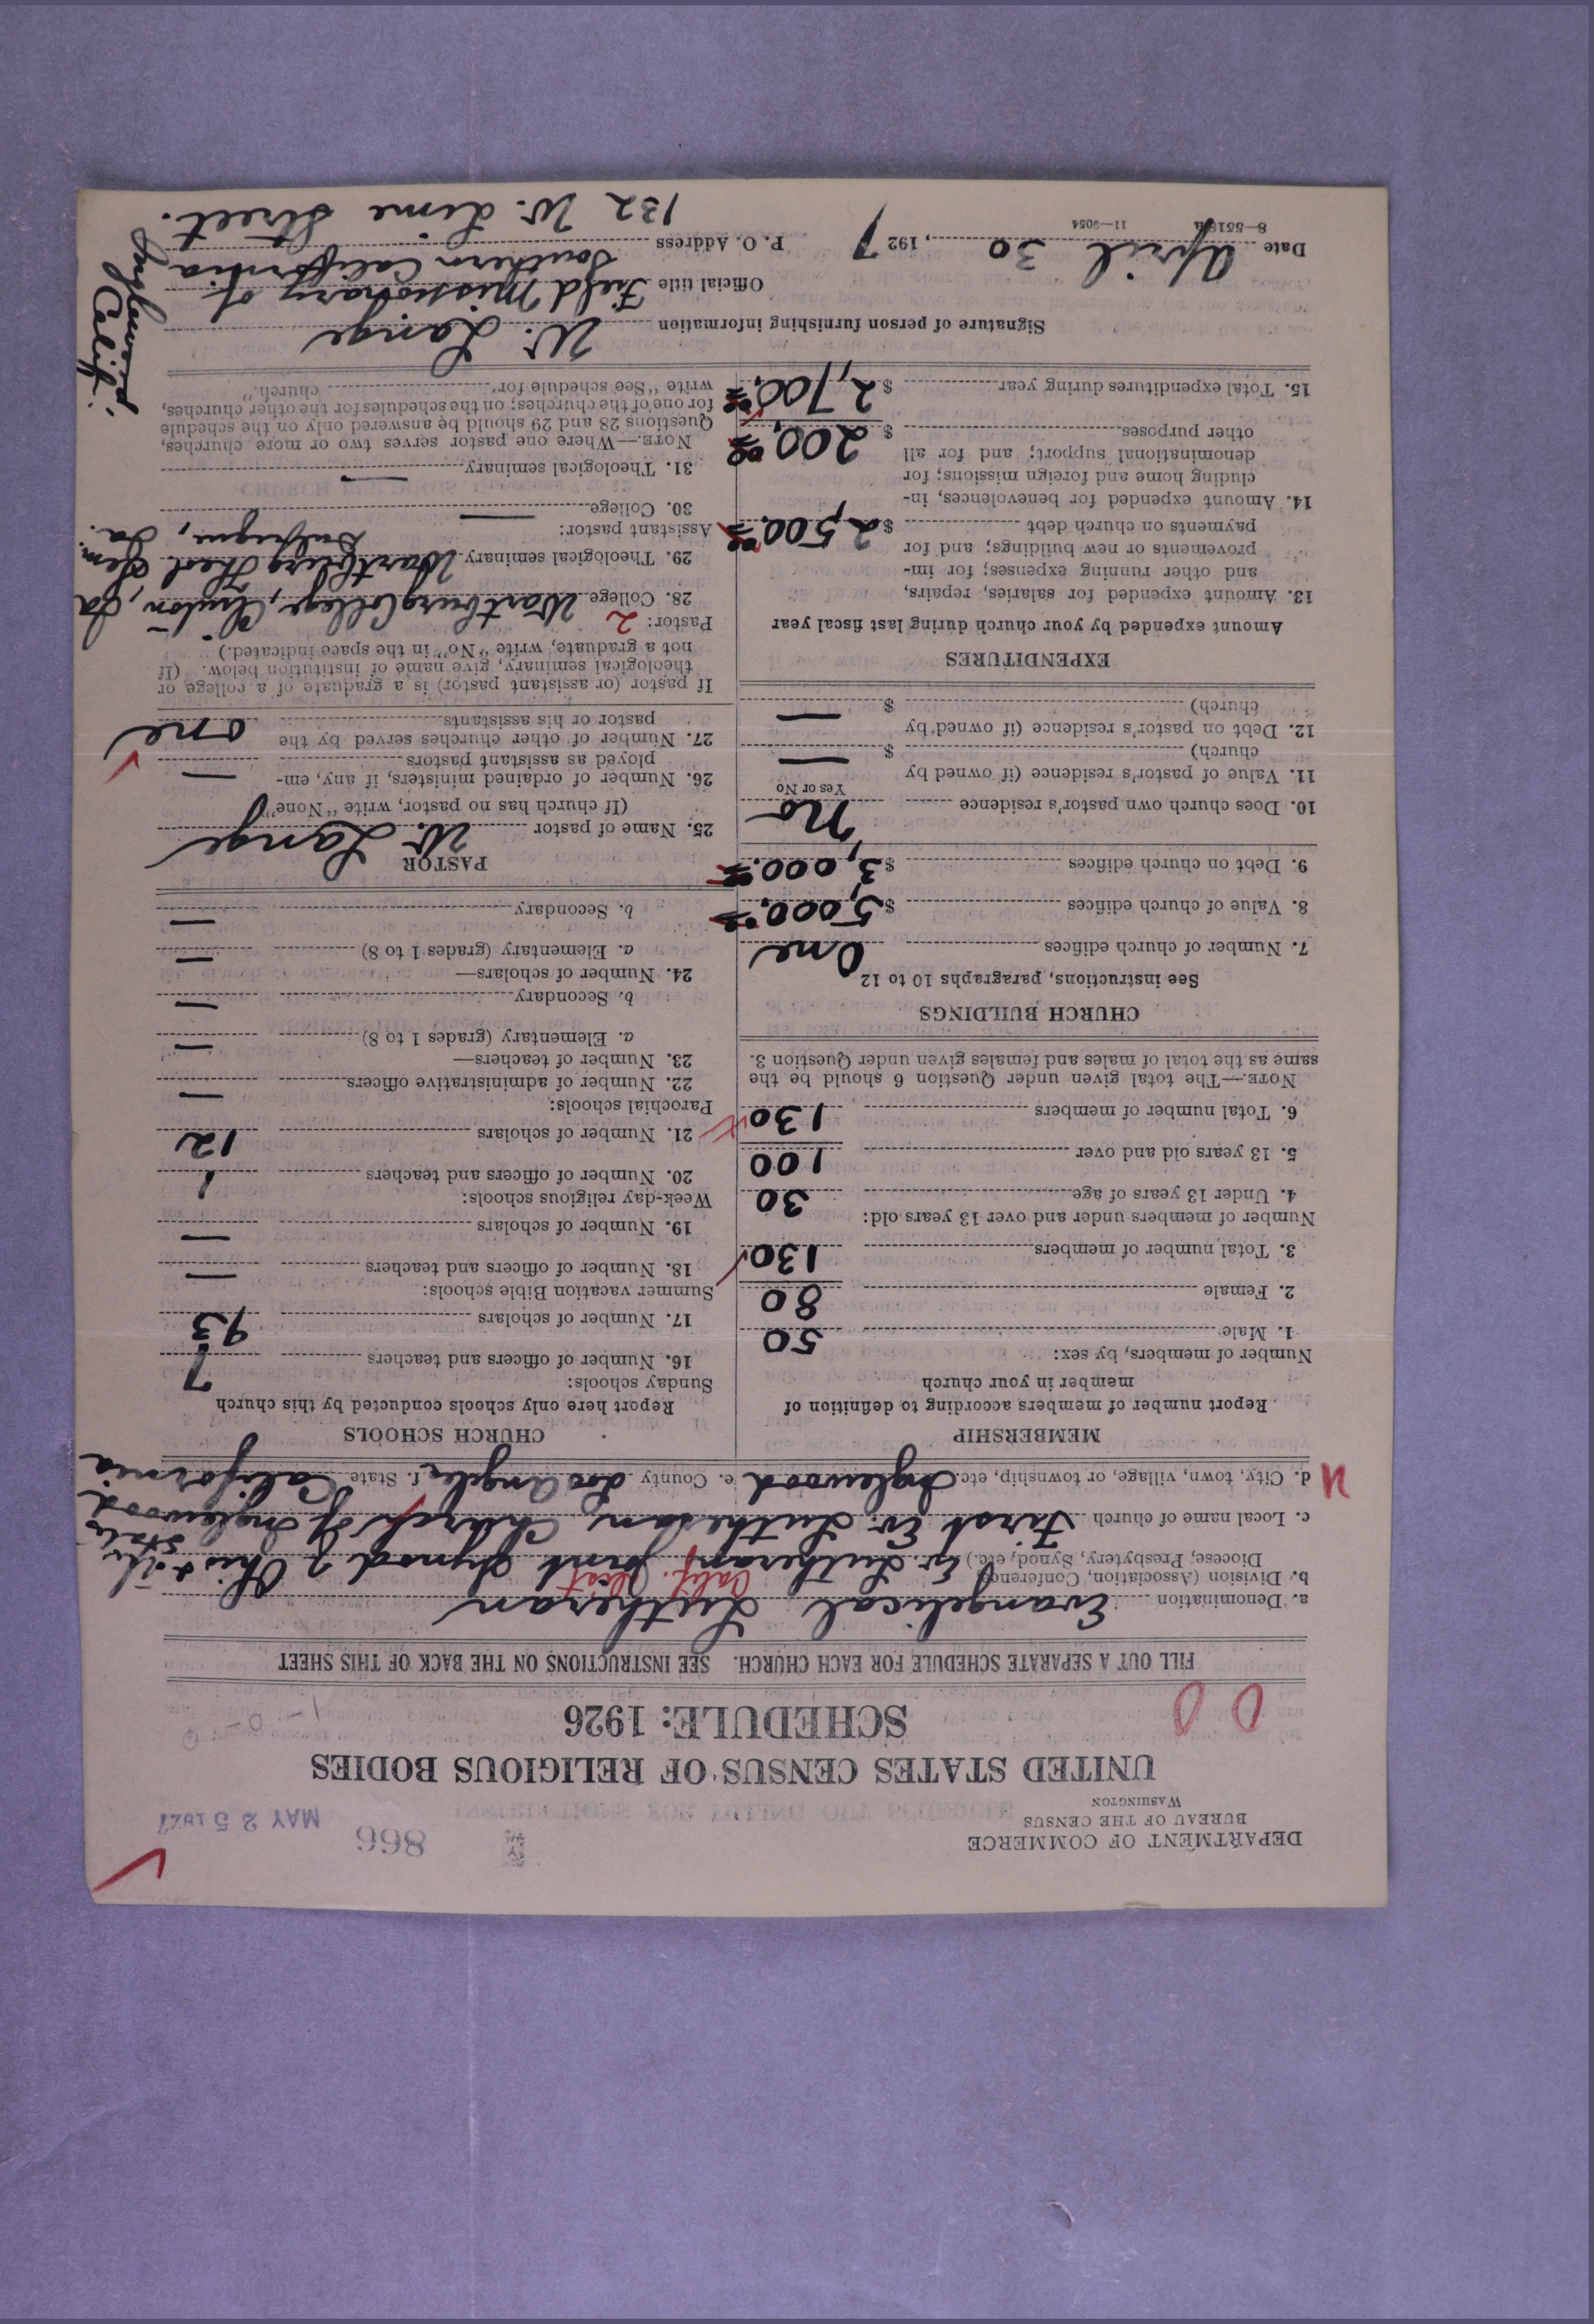 DEPARTMENT OF COMMERCE
BUREAU OF THE CENSUS
WASHINGTON
866
MAY 25 1927
UNITED STATES CENSUS OF RELIGIOUS BODIES
SCHEDULE: 1926
0 0
1-0-0
FILL OUT A SEPARATE SCHEDULE FOR EACH CHURCH. SEE INSTRUCTIONS ON THE BACK OF THIS SHEET
a. Denomination Evangelical Lutheran
Calif. Dist
b. Division (Association, Conference, Diocese, Presbytery, Synod, etc.) Ev. Lutheran Joint Synod of Ohio & other States
c. Local name of church First Ev. Lutheran Church of Inglewood
d. City, town, village, or township, etc. Inglewood e. County Los Angeles f. State California
MEMBERSHIP
Report number of members according to definition of
member in your church
Number of members, by sex:
1. Male 50
2. Female 80
3. Total number of members 130
Number of members under and over 13 years old:
4. Under 13 years of age 30
5. 13 years old and over 100
6. Total number of members 130
NOTE.—The total given under Question 6 should be the
same as the total of males and females given under Question 3.
CHURCH BUILDINGS
See instructions, paragraphs 10 to 12
7. Number of church edifices One
8. Value of church edifices $5,000.
9. Debt on church edifices $3,000.
10. Does church own pastor's residence no
Yes or No
11. Value of pastor's residence (if owned by
church) $ —
12. Debt on pastor's residence (if owned by
church) $ —
EXPENDITURES
Amount expended by your church during last fiscal year
13. Amount expended for salaries, repairs,
and other running expenses; for im-
provements or new buildings; and for
payments on church debt $2,500.
14. Amount expended for benevolences, in-
cluding home and foreign missions; for
denominational support; and for all
other purposes $200.
15. Total expenditures during year $2,700.
CHURCH SCHOOLS
Report here only schools conducted by this church
Sunday schools:
16. Number of officers and teachers 7
17. Number of scholars 93
Summer vacation Bible schools:
18. Number of officers and teachers —
19. Number of scholars —
Week-day religious schools:
20. Number of officers and teachers 1
21. Number of scholars 12
Parochial schools:
22. Number of administrative officers —
23. Number of teachers—
a. Elementary (grades 1 to 8) —
b. Secondary —
24. Number of scholars—
a. Elementary (grades 1 to 8) —
b. Secondary —
PASTOR
25. Name of pastor W. Lange
(If church has no pastor, write "None")
26. Number of ordained ministers, if any, em-
ployed as assistant pastors —
27. Number of other churches served by the
pastor or his assistants one
If pastor (or assistant pastor) is a graduate of a college or
theological seminary, give name of institution below. (If
not a graduate, write "No" in the space indicated.)
Pastor: 2
28. College Wartburg College, Clinton, Ia
29. Theological seminary Wartburg Theol. Sem.
Dubuque, Ia.
Assistant pastor:
30. College —
31. Theological seminary —
NOTE.—Where one pastor serves two or more churches,
Questions 28 and 29 should be answered only on the schedule
for one of the churches; on the schedules for the other churches,
write "See schedule for church."
Signature of person furnishing information W. Lange
Official title Field Missionary of
Southern California
Date April 30, 1927
P. O. Address 132 W. Lime Street.
Inglewood,
Calif.
8—5518a 11—9054